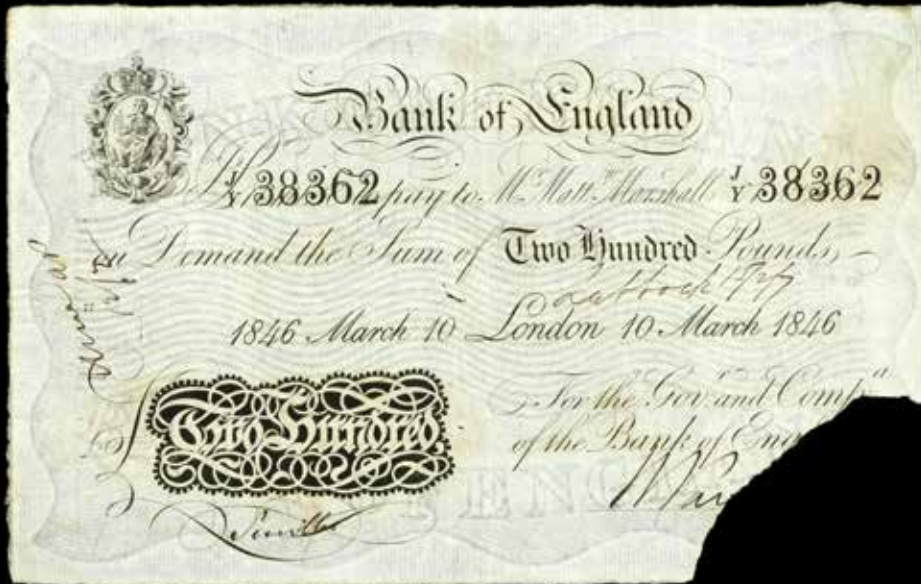 Bank of England
J/Y 38362 pay to Mr. Matt.w Marshall J/Y 38362
on Demand the Sum of Two Hundred Pounds,
1846 March 10 London 10 March 1846
For the Gov.r and Comp.a
of the Bank of Eng
Two Hundred